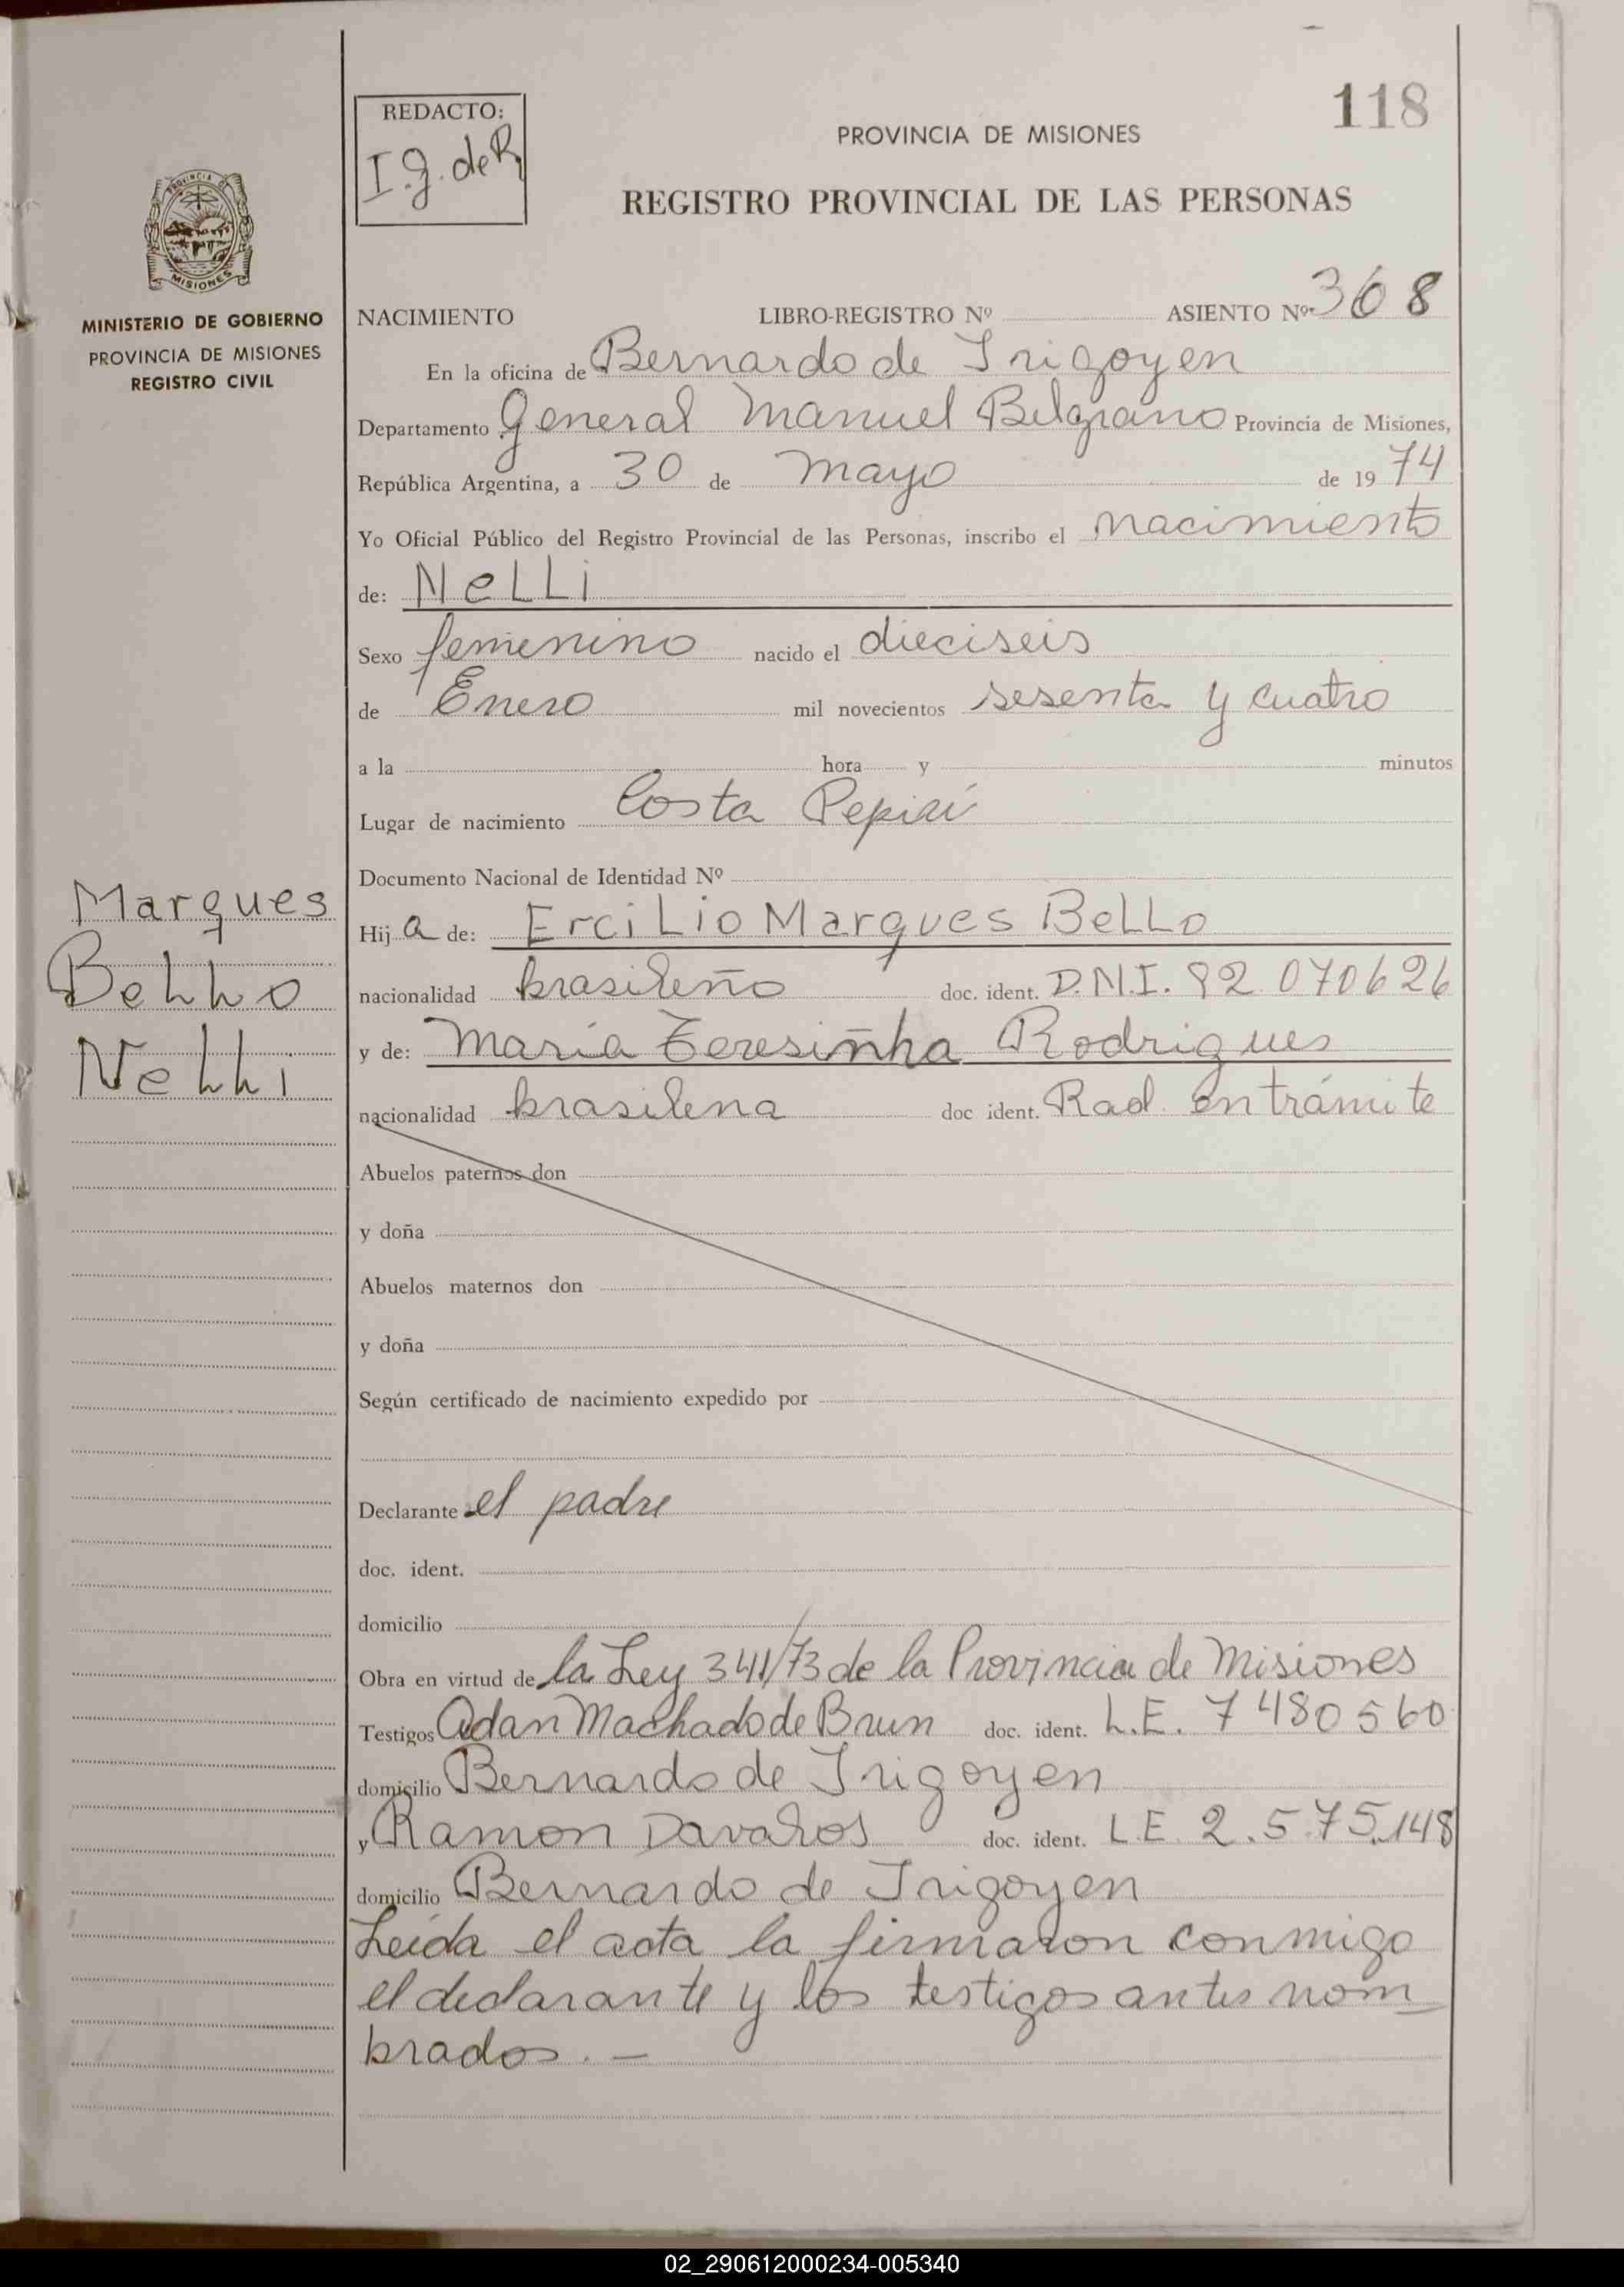 118
REDACTO:
I. g. de R.
PROVINCIA DE MISIONES
REGISTRO PROVINCIAL DE LAS PERSONAS
PROVINCIA DE
MISIONES
MINISTERIO DE GOBIERNO
PROVINCIA DE MISIONES
REGISTRO CIVIL
NACIMIENTO LIBRO-REGISTRO Nº ASIENTO Nº 368
En la oficina de Bernardo de Irigoyen
Departamento General Manuel Belgrano Provincia de Misiones,
República Argentina, a 30 de mayo de 19 74
Yo Oficial Público del Registro Provincial de las Personas, inscribo el nacimiento
de: NeLLi
Sexo femenino nacido el dieciseis
de Enero mil novecientos sesenta y cuatro
a la hora y minutos
Lugar de nacimiento Costa Pepirí
Documento Nacional de Identidad Nº
Marques
Bello
Nelli
Hij a de: ErciLio Marques BeLLo
nacionalidad brasileño doc. ident. D.N.I. 92.070626
y de: María Teresiñha Rodrigues
nacionalidad brasilena doc ident. Rad. en trámite
Abuelos paternos don
y doña
Abuelos maternos don
y doña
Según certificado de nacimiento expedido por
Declarante el padre
doc. ident.
domicilio
Obra en virtud de la Ley 341/73 de la Provincia de Misiones
Testigos Adan Machado de Brun doc. ident. L.E. 7480560
domicilio Bernardo de Irigoyen
y Ramon Davalos doc. ident. L.E. 2.575.148
domicilio Bernardo de Irigoyen
Leída el acta la firmaron conmigo
el declarante y los testigos antes nom
brados. —
02_290612000234-005340